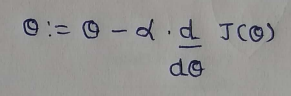 θ := θ - α · d/dθ J(θ)